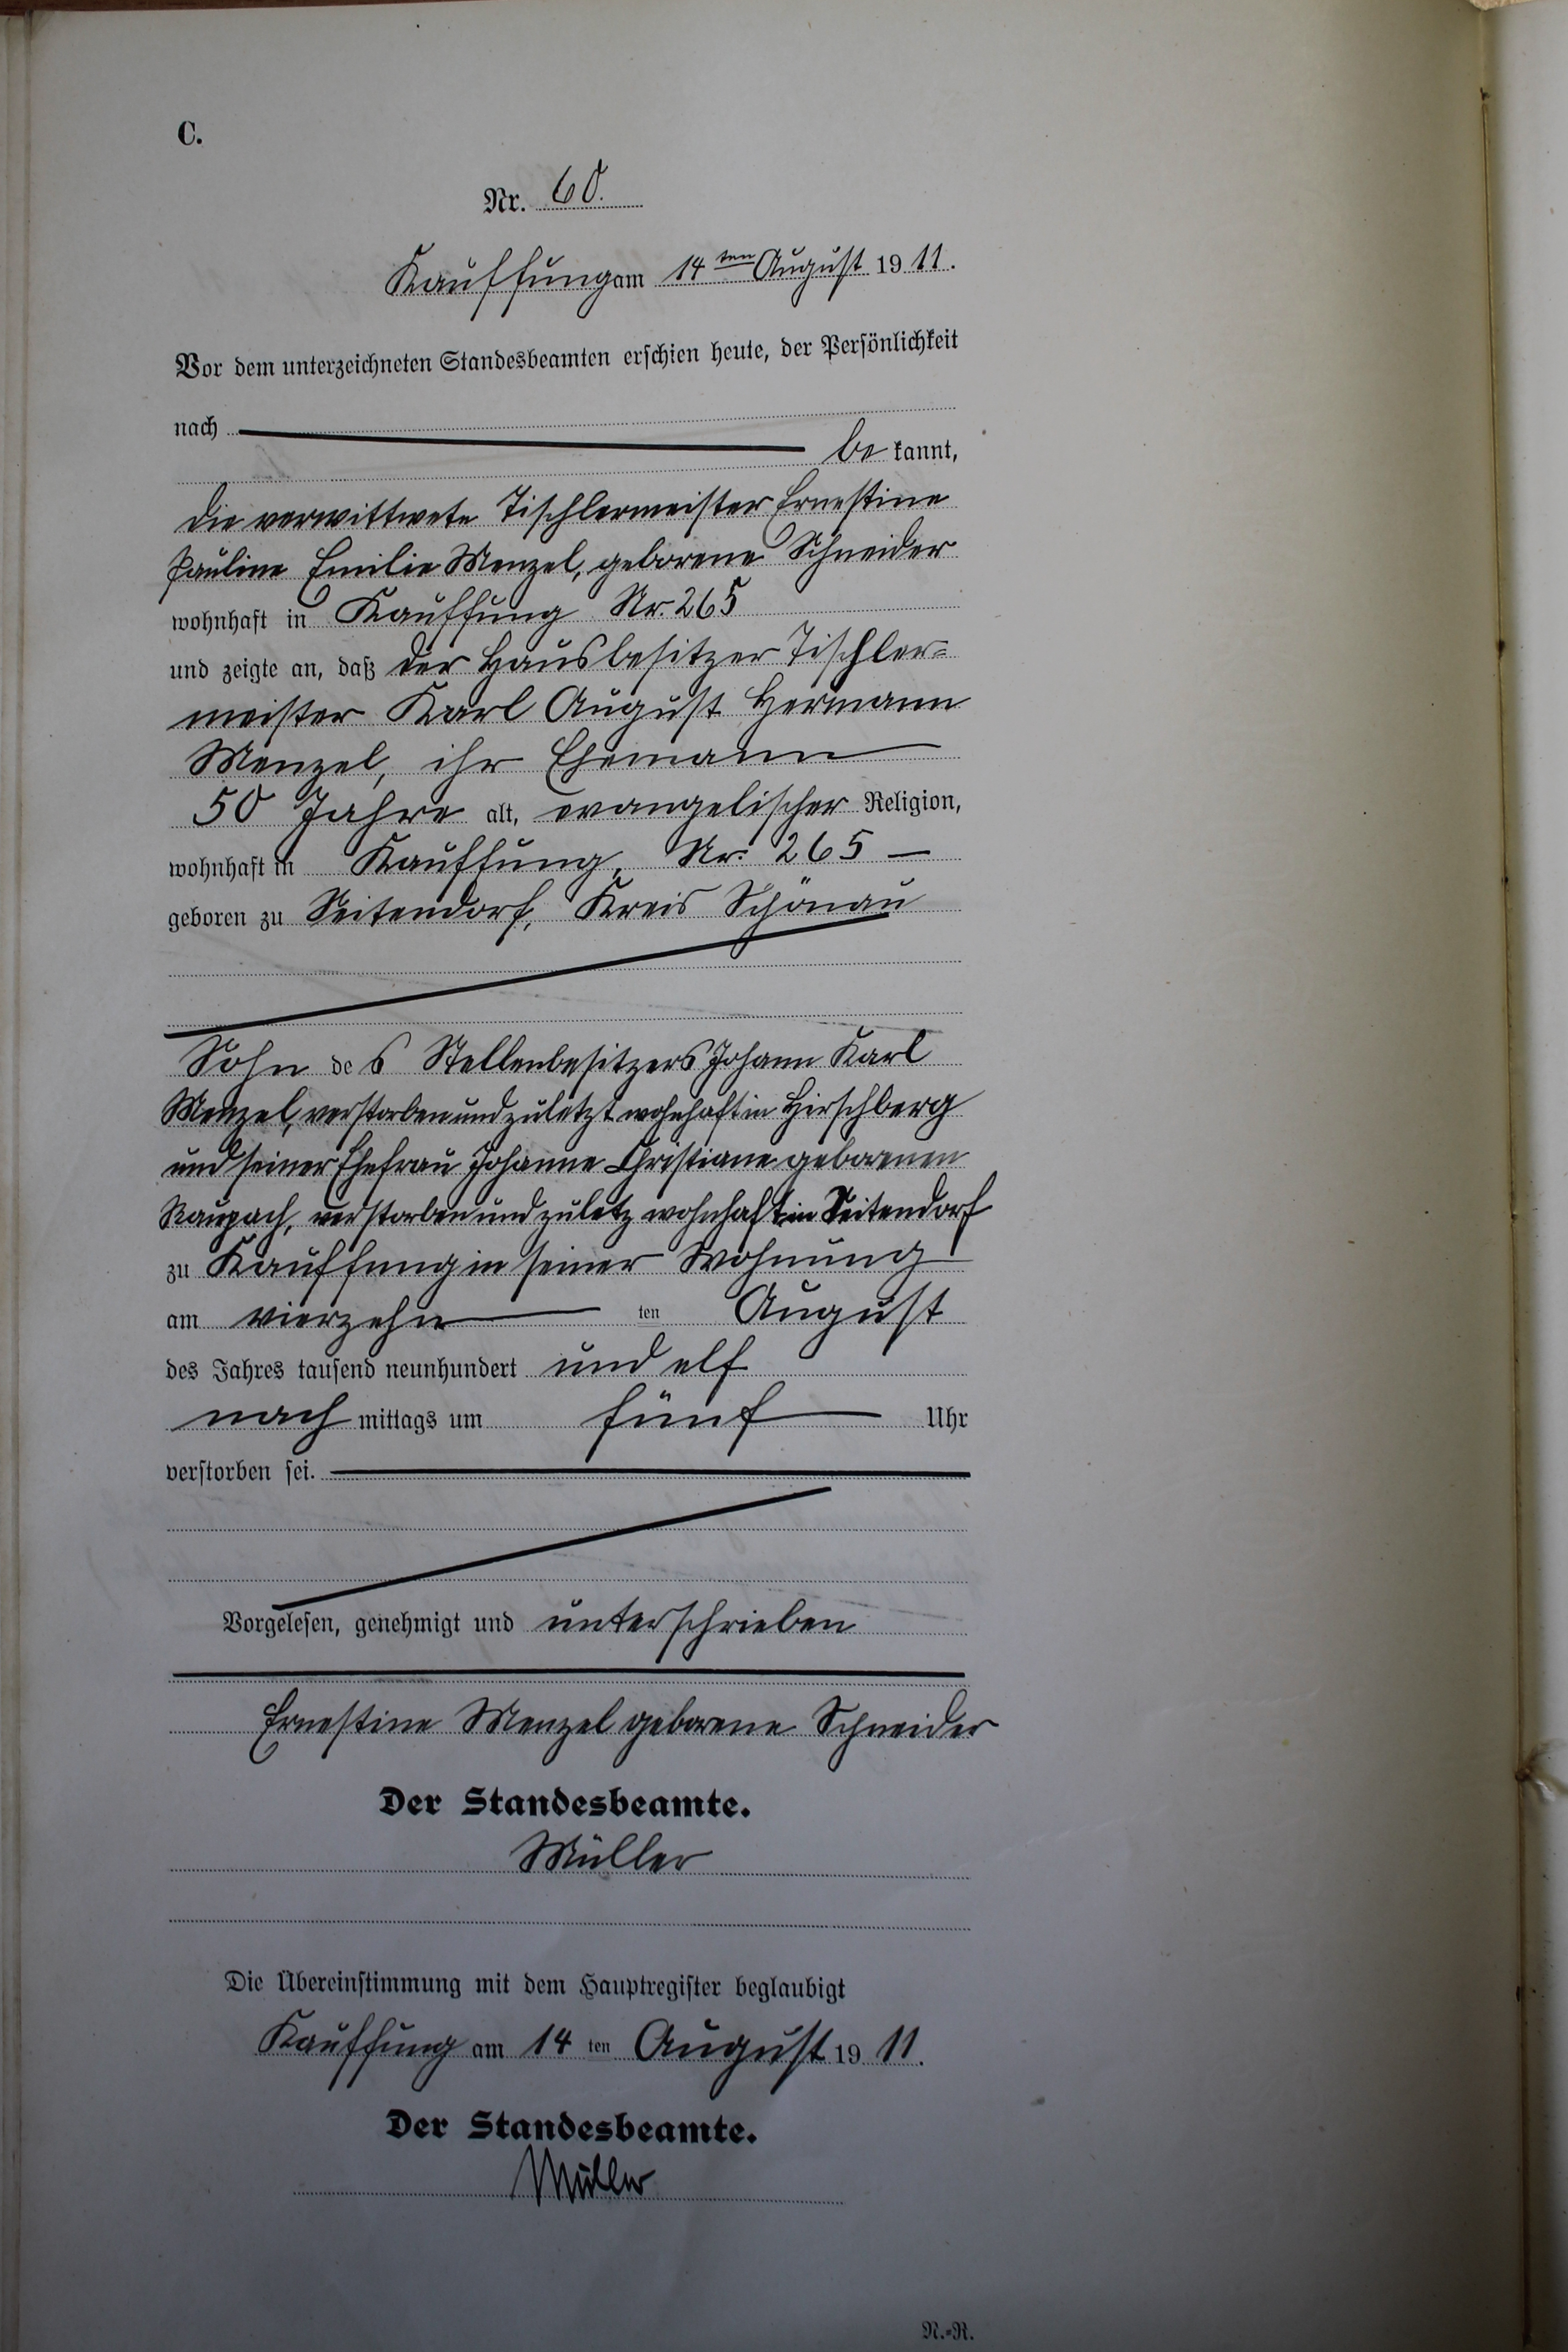 C.
Nr. 60.
Kauffung am 14ten August 1911.
Vor dem unterzeichneten Standesbeamten erschien heute, der Persönlichkeit
nach
be kannt,
die verwittwete Tischlermeister Ernestine
Pauline Emilie Menzel, geborene Schneider
wohnhaft in Kauffung Nr. 265
und zeigte an, daß der Hausbesitzer Tischler-
meister Karl August Hermann
Menzel, ihr Ehemann
50 Jahre alt, evangelischer Religion,
wohnhaft in Kauffung, Nr. 265
geboren zu Seitendorf, Kreis Schönau
Sohn des Stellenbesitzers Johann Karl
Menzel, verstorben und zuletzt wohnhaft in Hirschberg
und seiner Ehefrau Johanne Christiane geborenen
Raupach, verstorben und zuletz wohnhaft in Seitendorf
zu Kauffung in seiner Wohnung
am vierzehn ten August
des Jahres tausend neunhundert und elf
nach mittags um fünf Uhr
verstorben sei.
Vorgelesen, genehmigt und unterschrieben
Ernestine Menzel geborene Schneider
Der Standesbeamte.
Müller
Die Übereinstimmung mit dem Hauptregister beglaubigt
Kauffung am 14 ten August 1911.
Der Standesbeamte.
Müller
N.-R.